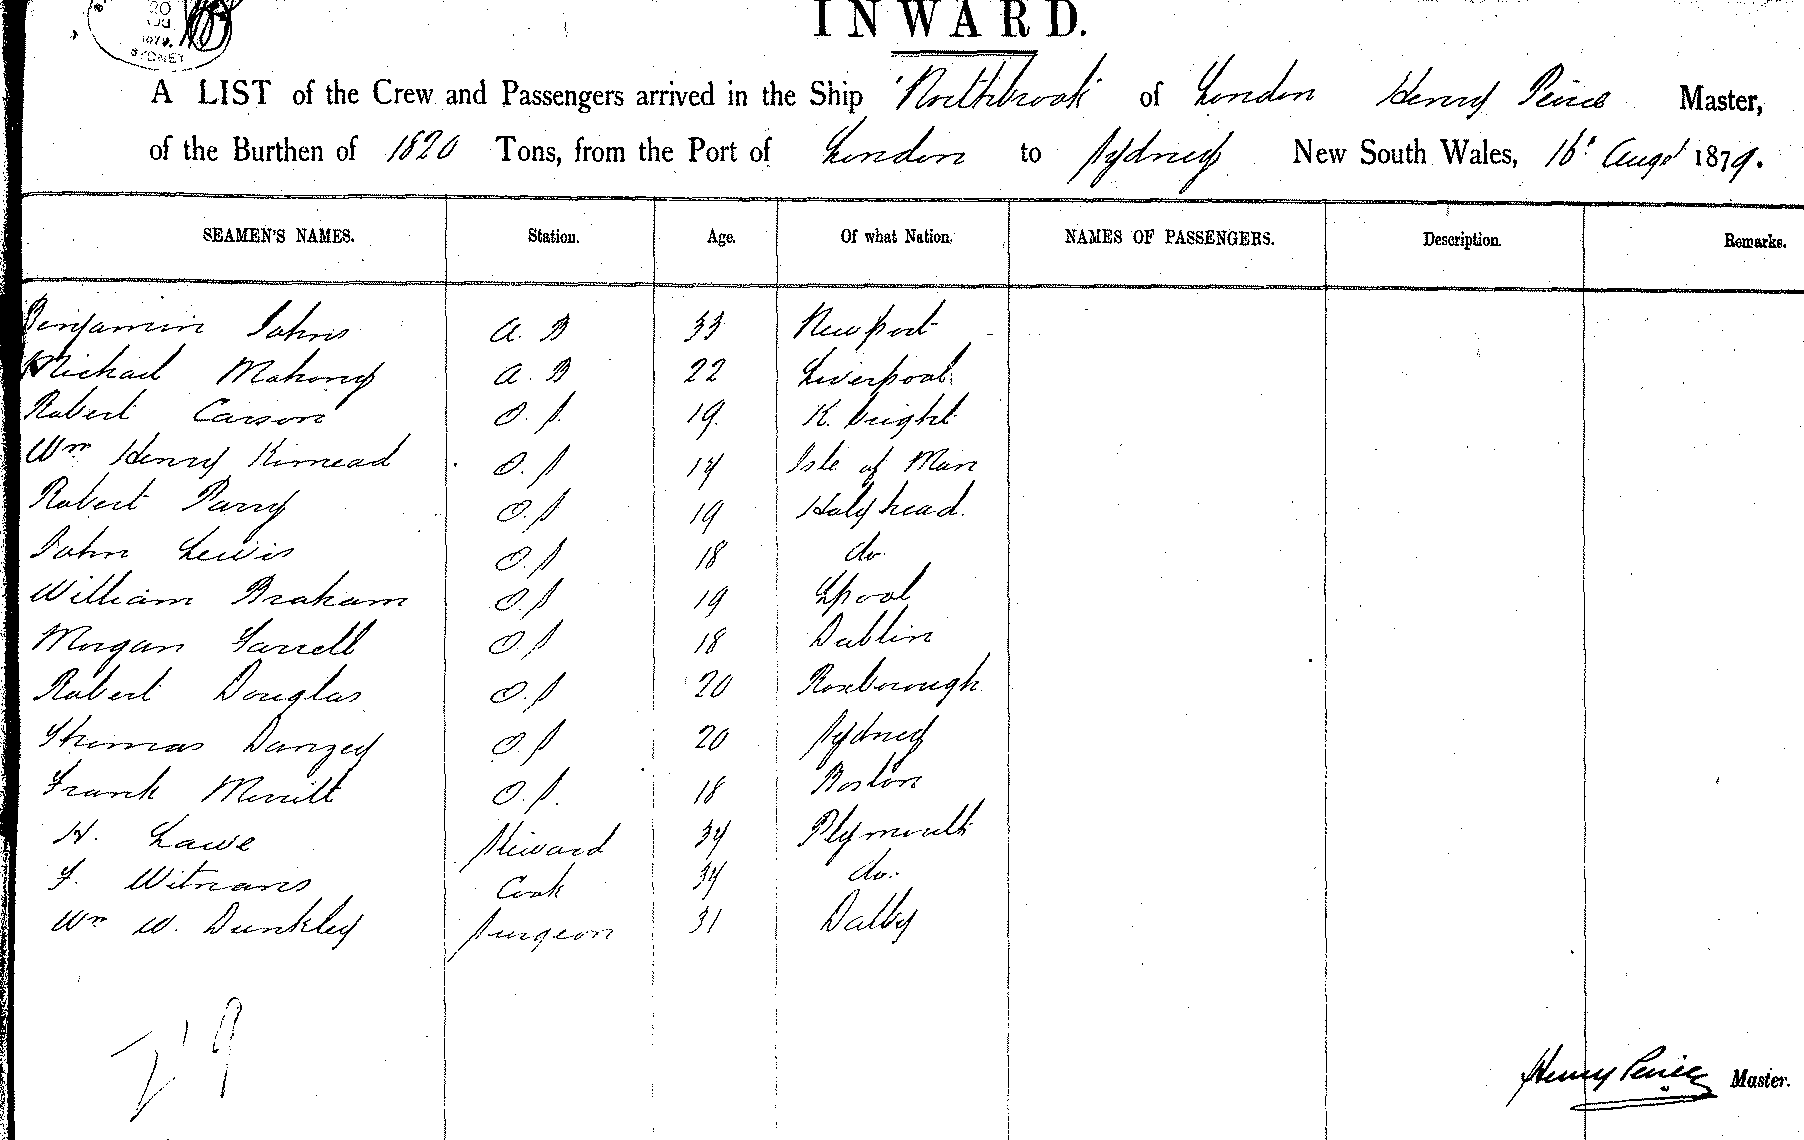 20
AUG
1879
SYDNEY
INWARD.
A LIST of the Crew and Passengers arrived in the Ship 'Northbrook' of London Henry Peirce Master,
of the Burthen of 1820 Tons, from the Port of London to Sydney New South Wales, 16' Augt 1879.
SEAMEN'S NAMES. Station. Age. Of what Nation. NAMES OF PASSENGERS. Description. Remarks.
Benjamin Johns A. B 33 Newport
Michael Mahony A. B 22 Liverpool
Robert Carson O. S. 19 K. bright
Wm Henry Kinnead O. S 17 Isle of Man
Robert Parry O. S 19 Holyhead.
John Lewis O. S 18 do
William Braham O. S 19 Lpool
Morgan Farrell O. S 18 Dublin
Robert Douglas O. S 20 Roxborough
Thomas Danzey O. S 20 Sydney
Frank Merritt O. S. 18 Boston
H. Lawe Steward 34 Plymouth
F. Witnans Cook 34 do.
Wm W. Dunkley Surgeon 31 Dalby
Henry Peirce Master.